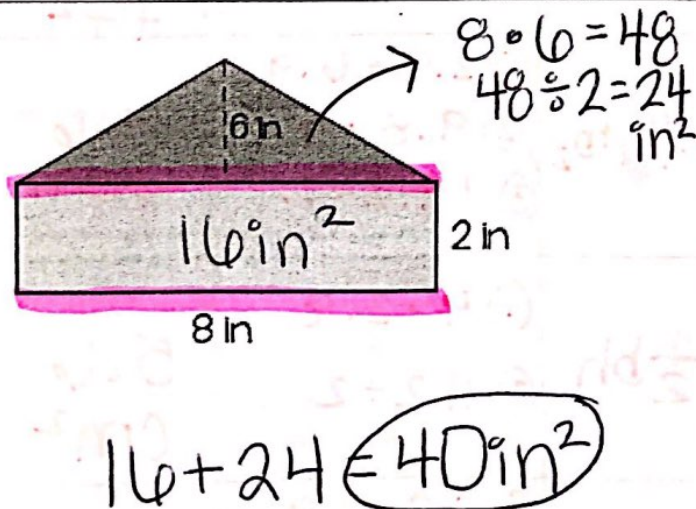 8 • 6 = 48
48 ÷ 2 = 24
in²
6 in
16in²
2 in
8 in
16 + 24 = 40in²